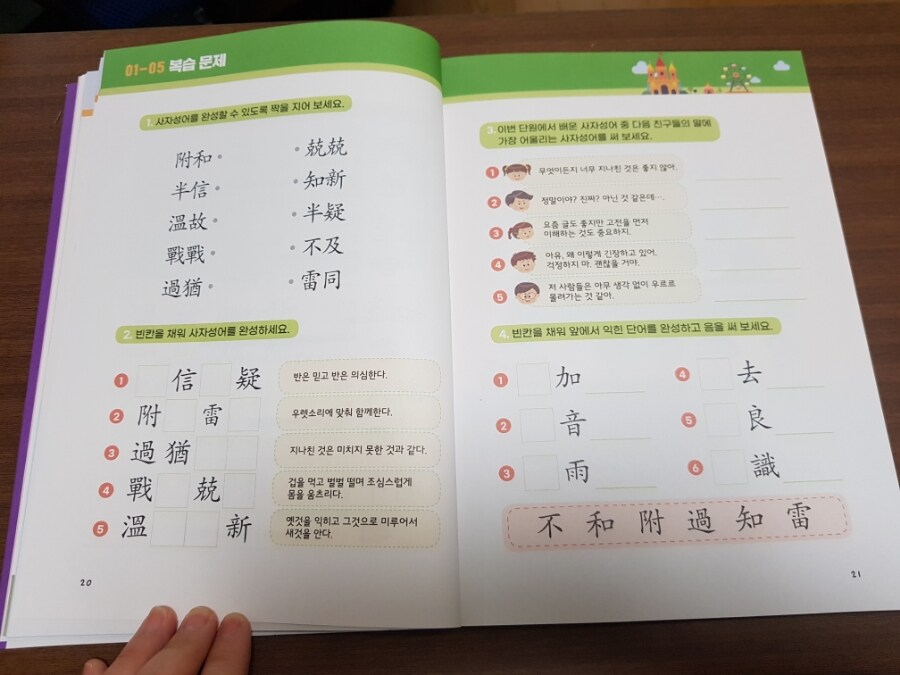 01-05 복습 문제
1. 사자성어를 완성할 수 있도록 짝을 지어 보세요.
附和 • • 兢兢
半信 • • 知新
溫故 • • 半疑
戰戰 • • 不及
過猶 • • 雷同
2. 빈칸을 채워 사자성어를 완성하세요.
1 信 疑 반은 믿고 반은 의심한다.
2 附 雷 우렛소리에 맞춰 함께한다.
3 過 猶 지나친 것은 미치지 못한 것과 같다.
4 戰 兢 겁을 먹고 벌벌 떨며 조심스럽게
몸을 움츠리다.
5 溫 新 옛것을 익히고 그것으로 미루어서
새것을 안다.
20
3. 이번 단원에서 배운 사자성어 중 다음 친구들의 말에
가장 어울리는 사자성어를 써 보세요.
1 무엇이든지 너무 지나친 것은 좋지 않아.
2 정말이야? 진짜? 아닌 것 같은데….
3 요즘 글도 좋지만 고전을 먼저
이해하는 것도 중요하지.
4 아유, 왜 이렇게 긴장하고 있어.
걱정하지 마. 괜찮을 거야.
5 저 사람들은 아무 생각 없이 우르르
몰려가는 것 같아.
4. 빈칸을 채워 앞에서 익힌 단어를 완성하고 음을 써 보세요.
1 加
2 音
3 雨
4 去
5 良
6 識
不 和 附 過 知 雷
21